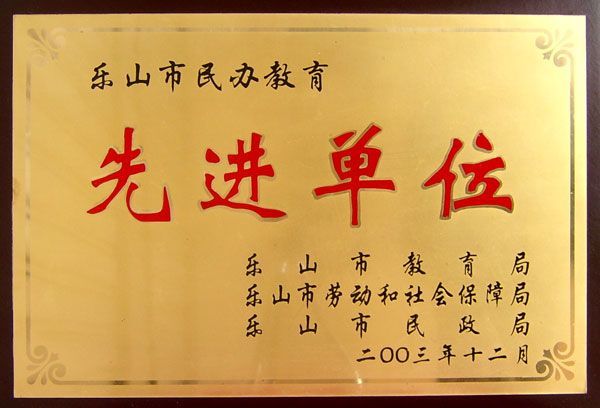 乐山市民办教育
先进单位
乐山市教育局
乐山市劳动和社会保障局
乐山市民政局
二〇〇三年十二月